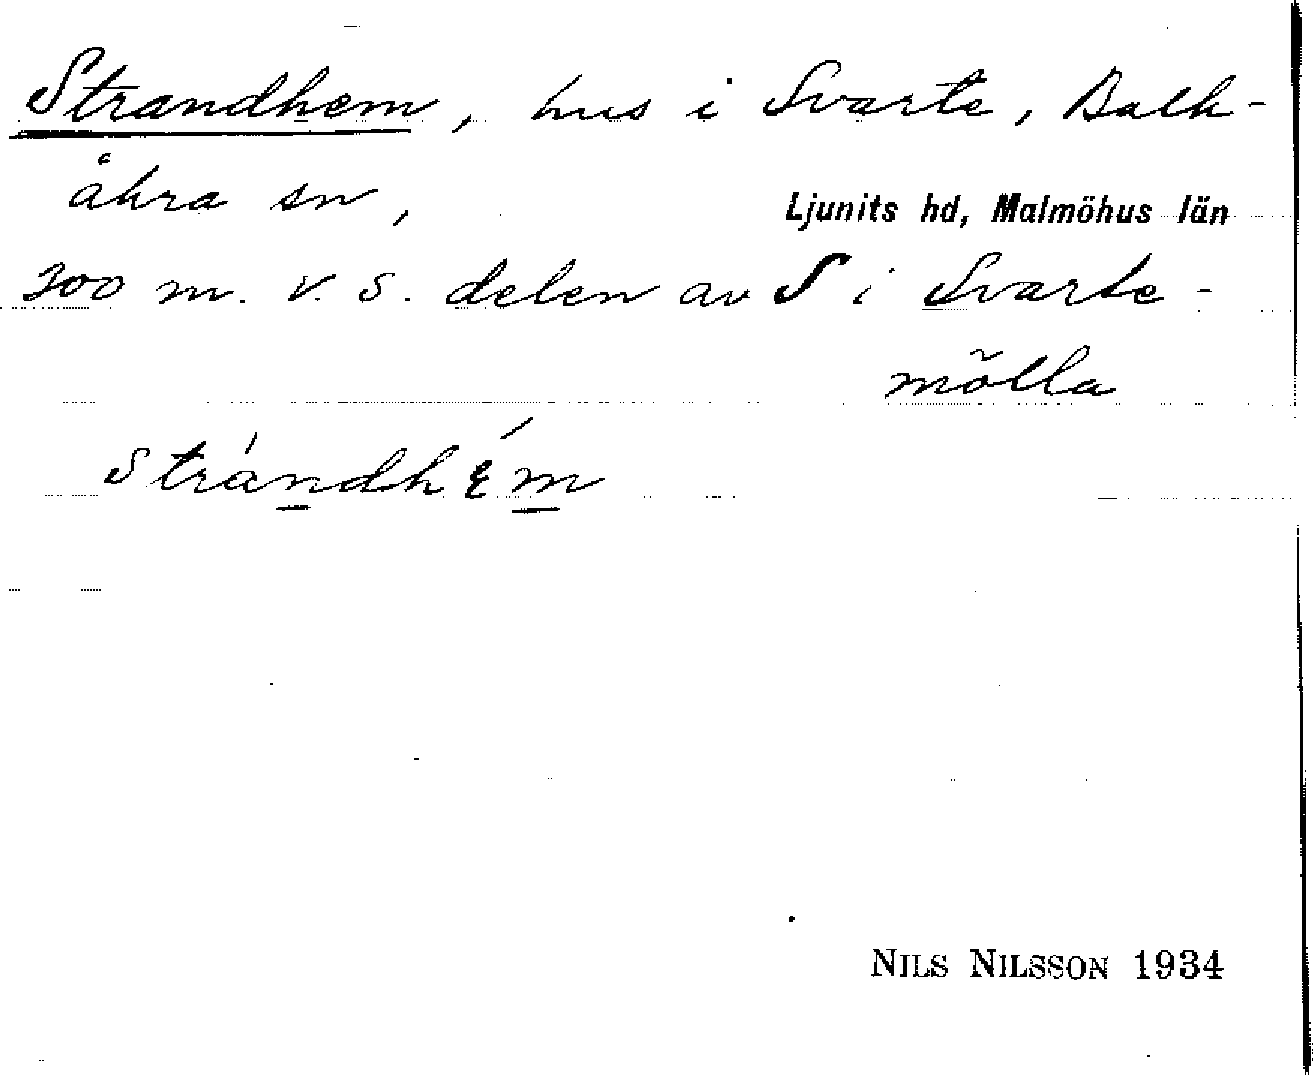 Strandhem, hus i Svarte, Balk-
åkra sn,
Ljunits hd, Malmöhus län
300 m. v. s. delen av S i Svarte-
mölla
Strándhɛ́m
NILS NILSSON 1934